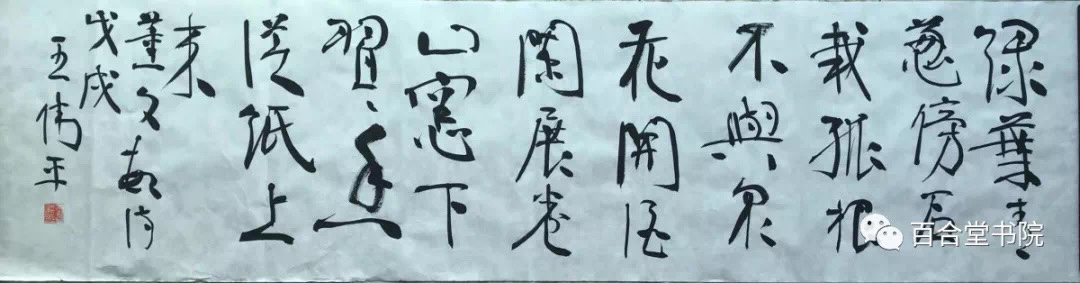 綠葉青
葱傍石
栽孤根
不與眾
花開酒
闌展卷
山窻下
習〻香
從紙上
來
董文敏詩
戊戌
王偉平
百合堂书院